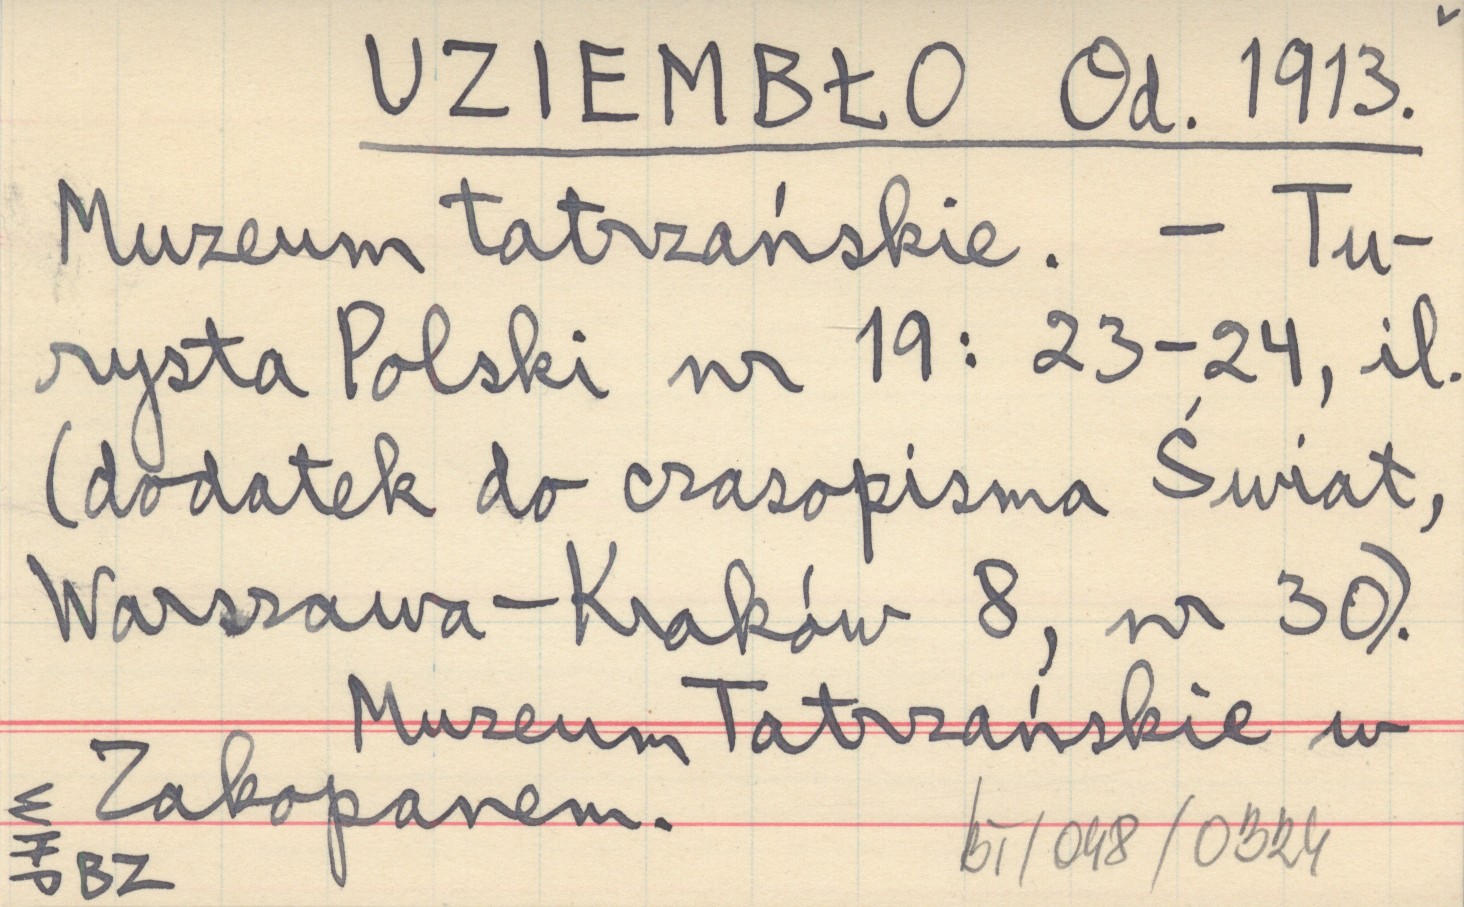 UZIEMBŁO Od. 1913.
Muzeum tatrzańskie. – Tu-
rysta Polski nr 19: 23–24, il.
(dodatek do czasopisma Świat,
Warszawa–Kraków 8, nr 30).
Muzeum Tatrzańskie w
Zakopanem.
BZ
/048/0324